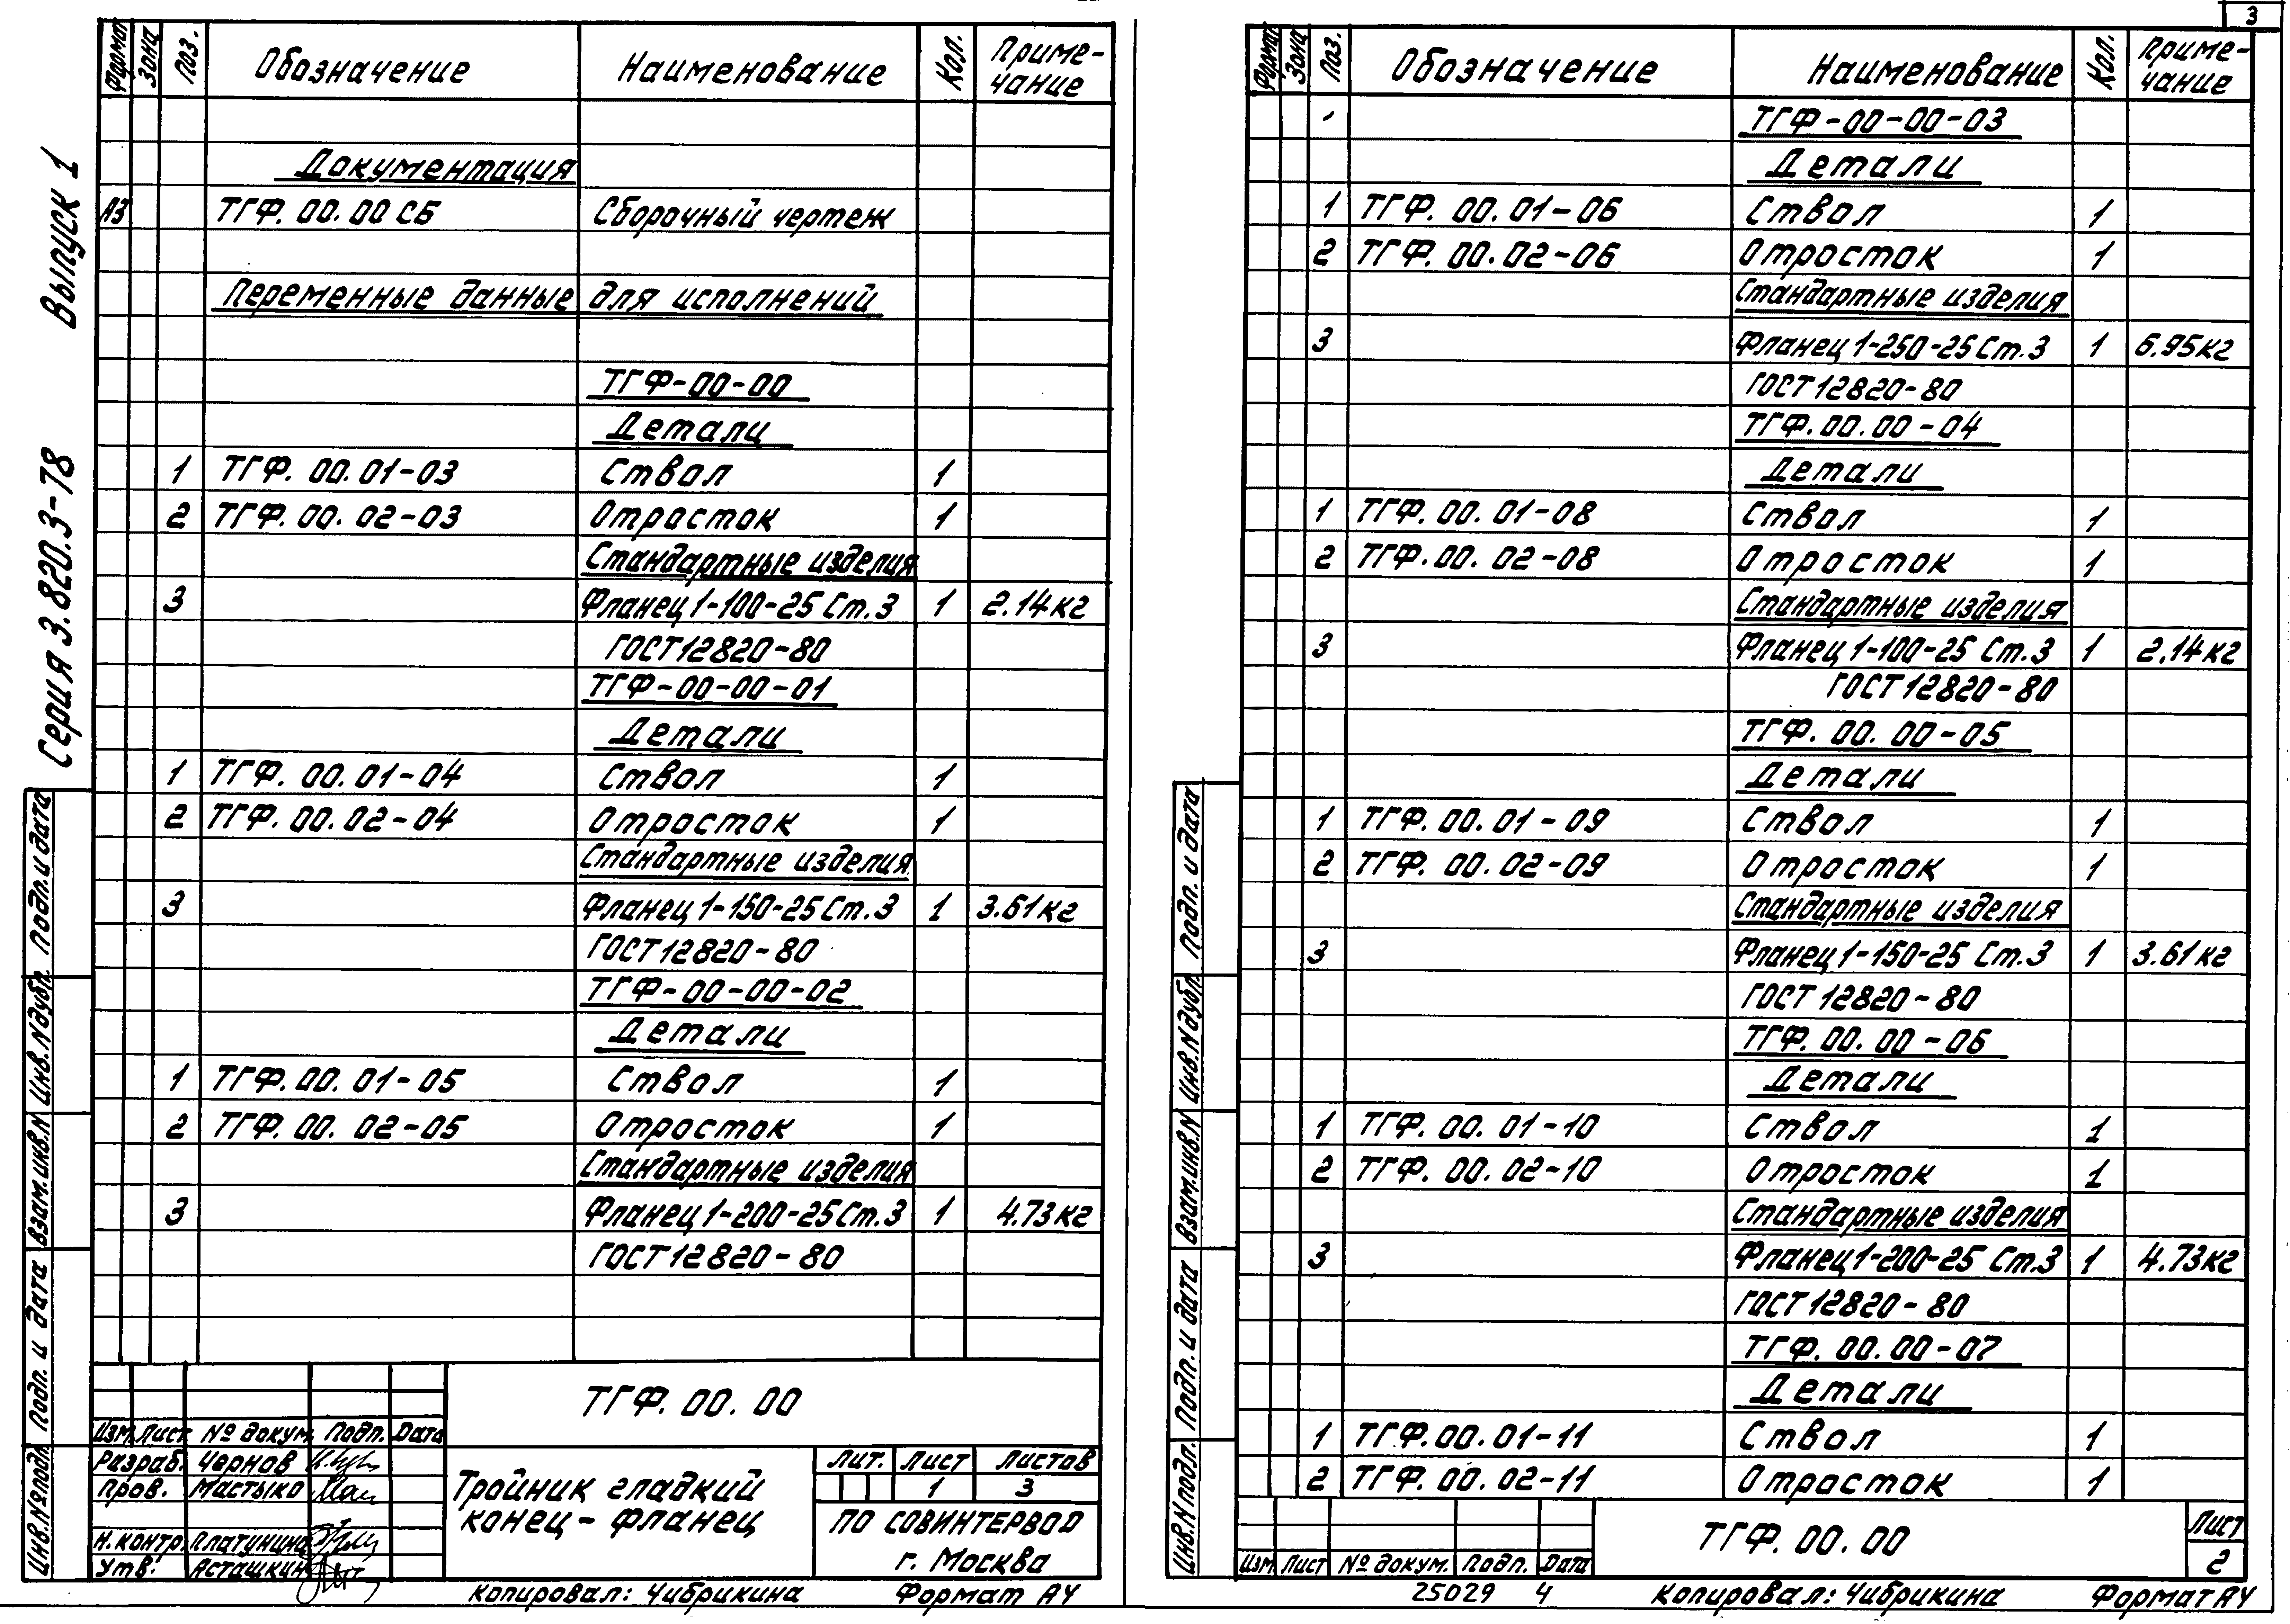 3
Серия 3.820.3-78 Выпуск 1
Формат Зона Поз. Обозначение Наименование Кол. Приме-
чание
Документация
А3 ТГФ. 00. 00 СБ Сборочный чертеж
Переменные данные для исполнений
ТГФ-00-00
Детали
1 ТГФ. 00. 01-03 Ствол 1
2 ТГФ. 00. 02-03 Отросток 1
Стандартные изделия
3 Фланец 1-100-25 Ст. 3 1 2.14 кг
ГОСТ 12820-80
ТГФ-00-00-01
Детали
1 ТГФ. 00. 01-04 Ствол 1
2 ТГФ. 00. 02-04 Отросток 1
Стандартные изделия
3 Фланец 1-150-25 Ст. 3 1 3.61 кг
ГОСТ 12820-80
ТГФ-00-00-02
Детали
1 ТГФ. 00. 01-05 Ствол 1
2 ТГФ. 00. 02-05 Отросток 1
Стандартные изделия
3 Фланец 1-200-25 Ст. 3 1 4.73 кг
ГОСТ 12820-80
Инв. № подл. Подп. и дата Взам. инв. N Инв. N дубл. Подп. и дата
ТГФ. 00. 00
Изм. Лист № докум. Подп. Дата
Разраб. Чернов
Пров. Мастыко
Н. контр. Платунина
Утв. Асташкин
Тройник гладкий
конец - фланец
Лит. Лист Листов
1 3
ПО СОВИНТЕРВОД
г. Москва
Копировал: Чибрикина Формат А4
Формат Зона Поз. Обозначение Наименование Кол. Приме-
чание
ТГФ-00-00-03
Детали
1 ТГФ. 00. 01-06 Ствол 1
2 ТГФ. 00. 02-06 Отросток 1
Стандартные изделия
3 Фланец 1-250-25 Ст. 3 1 6.95 кг
ГОСТ 12820-80
ТГФ. 00. 00-04
Детали
1 ТГФ. 00. 01-08 Ствол 1
2 ТГФ. 00. 02-08 Отросток 1
Стандартные изделия
3 Фланец 1-100-25 Ст. 3 1 2.14 кг
ГОСТ 12820-80
ТГФ. 00. 00-05
Детали
1 ТГФ. 00. 01-09 Ствол 1
2 ТГФ. 00. 02-09 Отросток 1
Стандартные изделия
3 Фланец 1-150-25 Ст. 3 1 3.61 кг
ГОСТ 12820-80
ТГФ. 00. 00-06
Детали
1 ТГФ. 00. 01-10 Ствол 1
2 ТГФ. 00. 02-10 Отросток 1
Стандартные изделия
3 Фланец 1-200-25 Ст. 3 1 4.73 кг
ГОСТ 12820-80
ТГФ. 00. 00-07
Детали
1 ТГФ. 00. 01-11 Ствол 1
2 ТГФ. 00. 02-11 Отросток 1
Инв. N подл. Подп. и дата Взам. инв. N Инв. N дубл. Подп. и дата
Изм Лист № докум. Подп. Дата
ТГФ. 00. 00
Лист
2
25029 4 Копировал: Чибрикина Формат А4